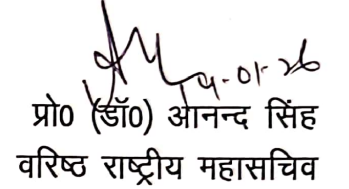 प्रो0 (डॉ0) आनन्द सिंह
वरिष्ठ राष्ट्रीय महासचिव